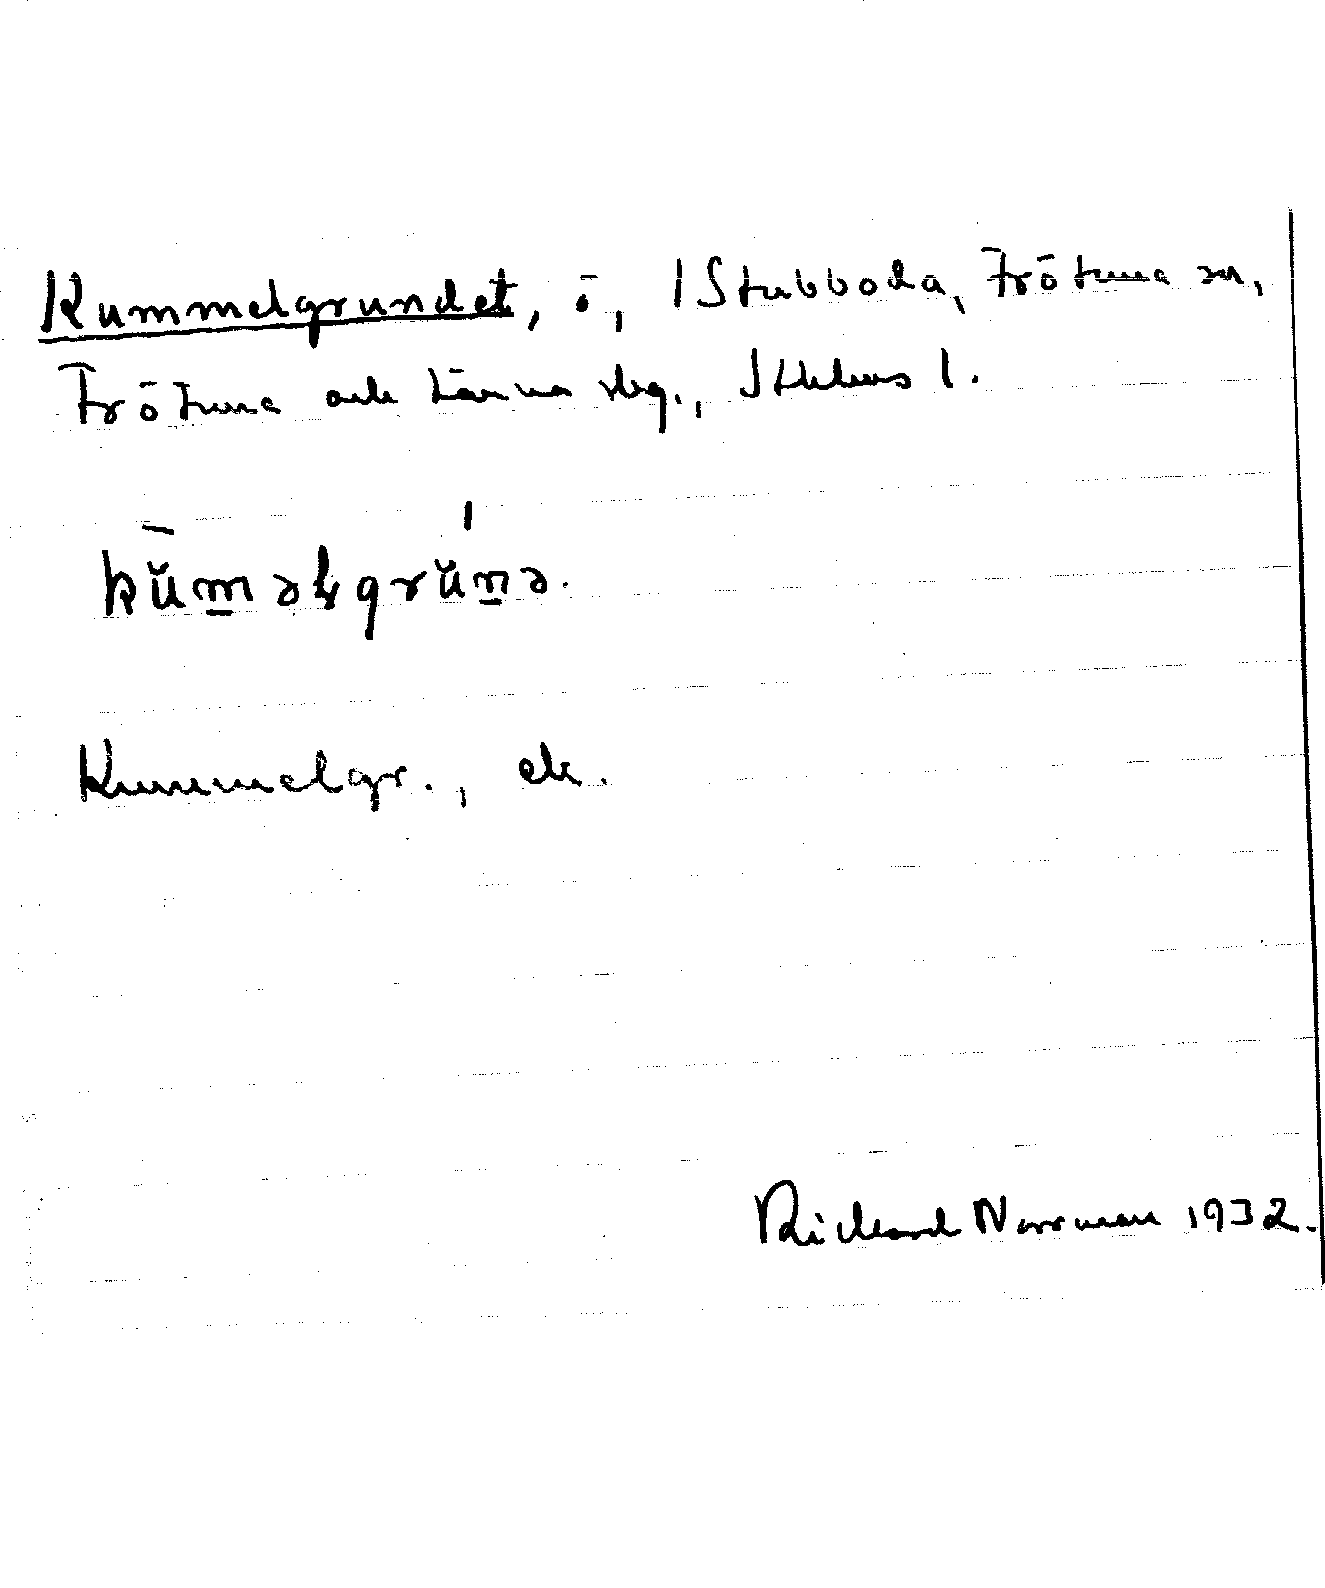 Kummelgrundet, ö, 1 Stubboda, Frötuna sn,
Frötuna och Länna skg., Sthlms l.
kŭm̲əlgrŭn̲ə.
Kummelgr., ek.
Rickard Norrman 1932.